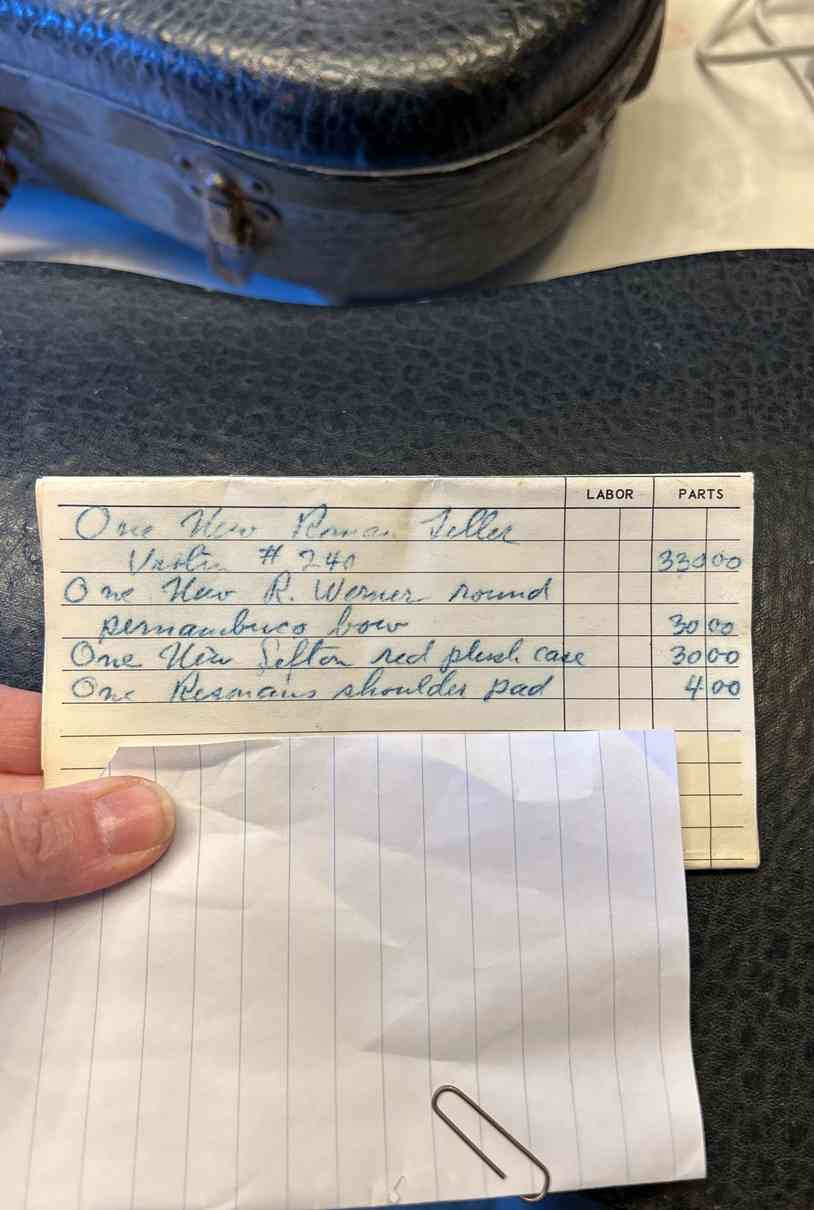 LABOR PARTS
One New Roman Teller
Violin # 240 330 00
One New R. Werner round
pernambuco bow 30 00
One New Lifton red plush case 30 00
One Resonans shoulder pad 4 00